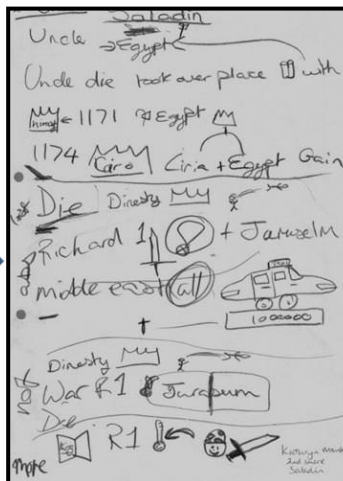 Saladin
Uncle → Egypt
Uncle die took over place with
1171 Egypt
1174 Cairo Ciria + Egypt Gain
Die Dinesty
Richard 1 + Jaruselm
middle east all
1000000
Dinesty
War R1 Jarasum
Die
R1
more
2nd share
Saladin